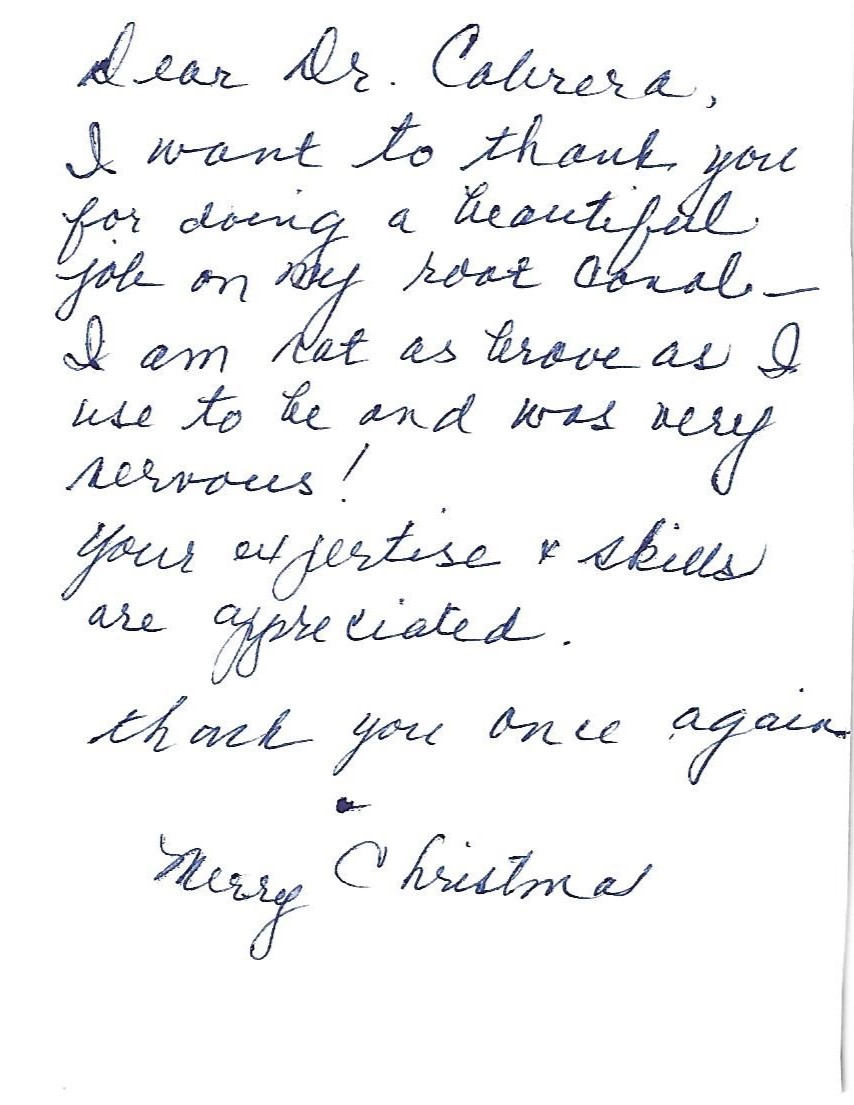 Dear Dr. Cabrera,
I want to thank you
for doing a beautiful
job on my root canal –
I am not as brave as I
use to be and was very
nervous!
Your expertise & skills
are appreciated.
thank you once again
Merry Christmas